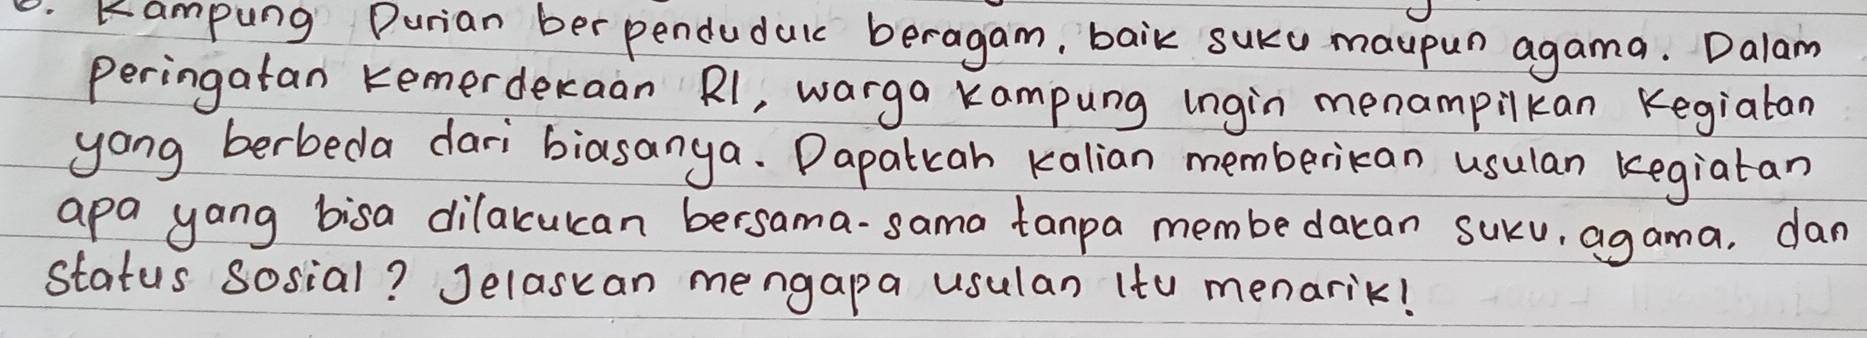 6. Kampung Durian berpenduduk beragam, baik suku maupun agama. Dalam
peringatan kemerdekaan RI, warga kampung ingin menampilkan kegiatan
yang berbeda dari biasanya. Dapatkah kalian memberikan usulan kegiatan
apa yang bisa dilakukan bersama-sama tanpa membedakan suku, agama, dan
status sosial? Jelaskan mengapa usulan itu menarik!